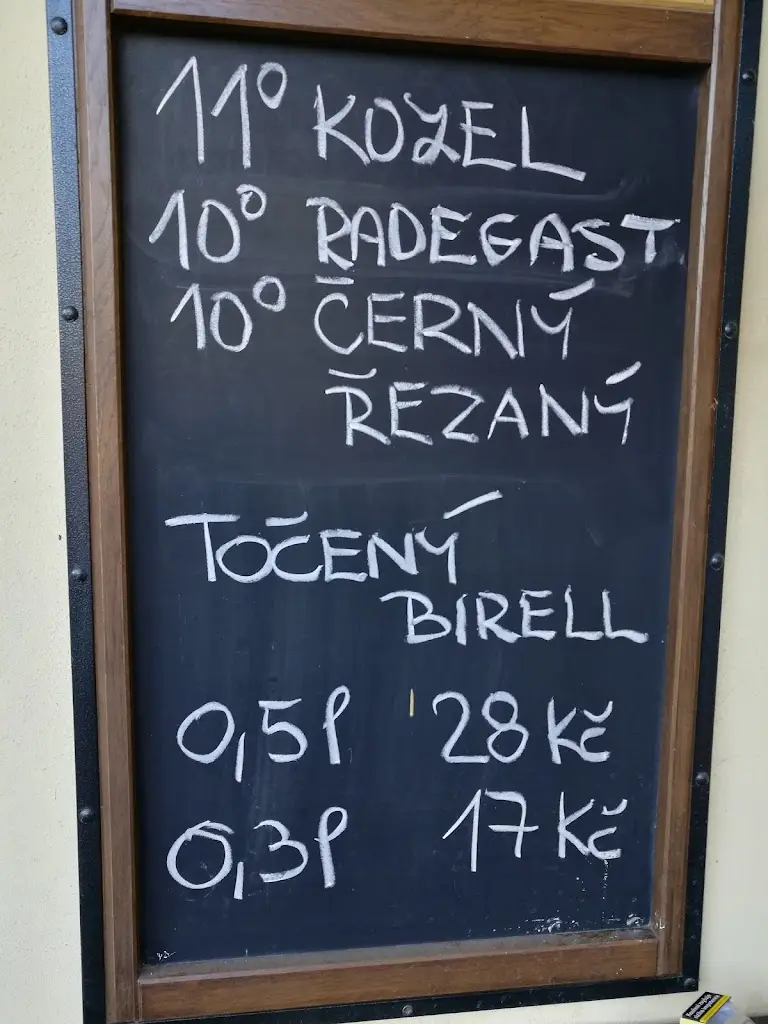 11° KOZEL
10° RADEGAST
10° ČERNÝ
ŘEZANÝ
TOČENÝ
BIRELL
0,5l 28 Kč
0,3l 17 Kč